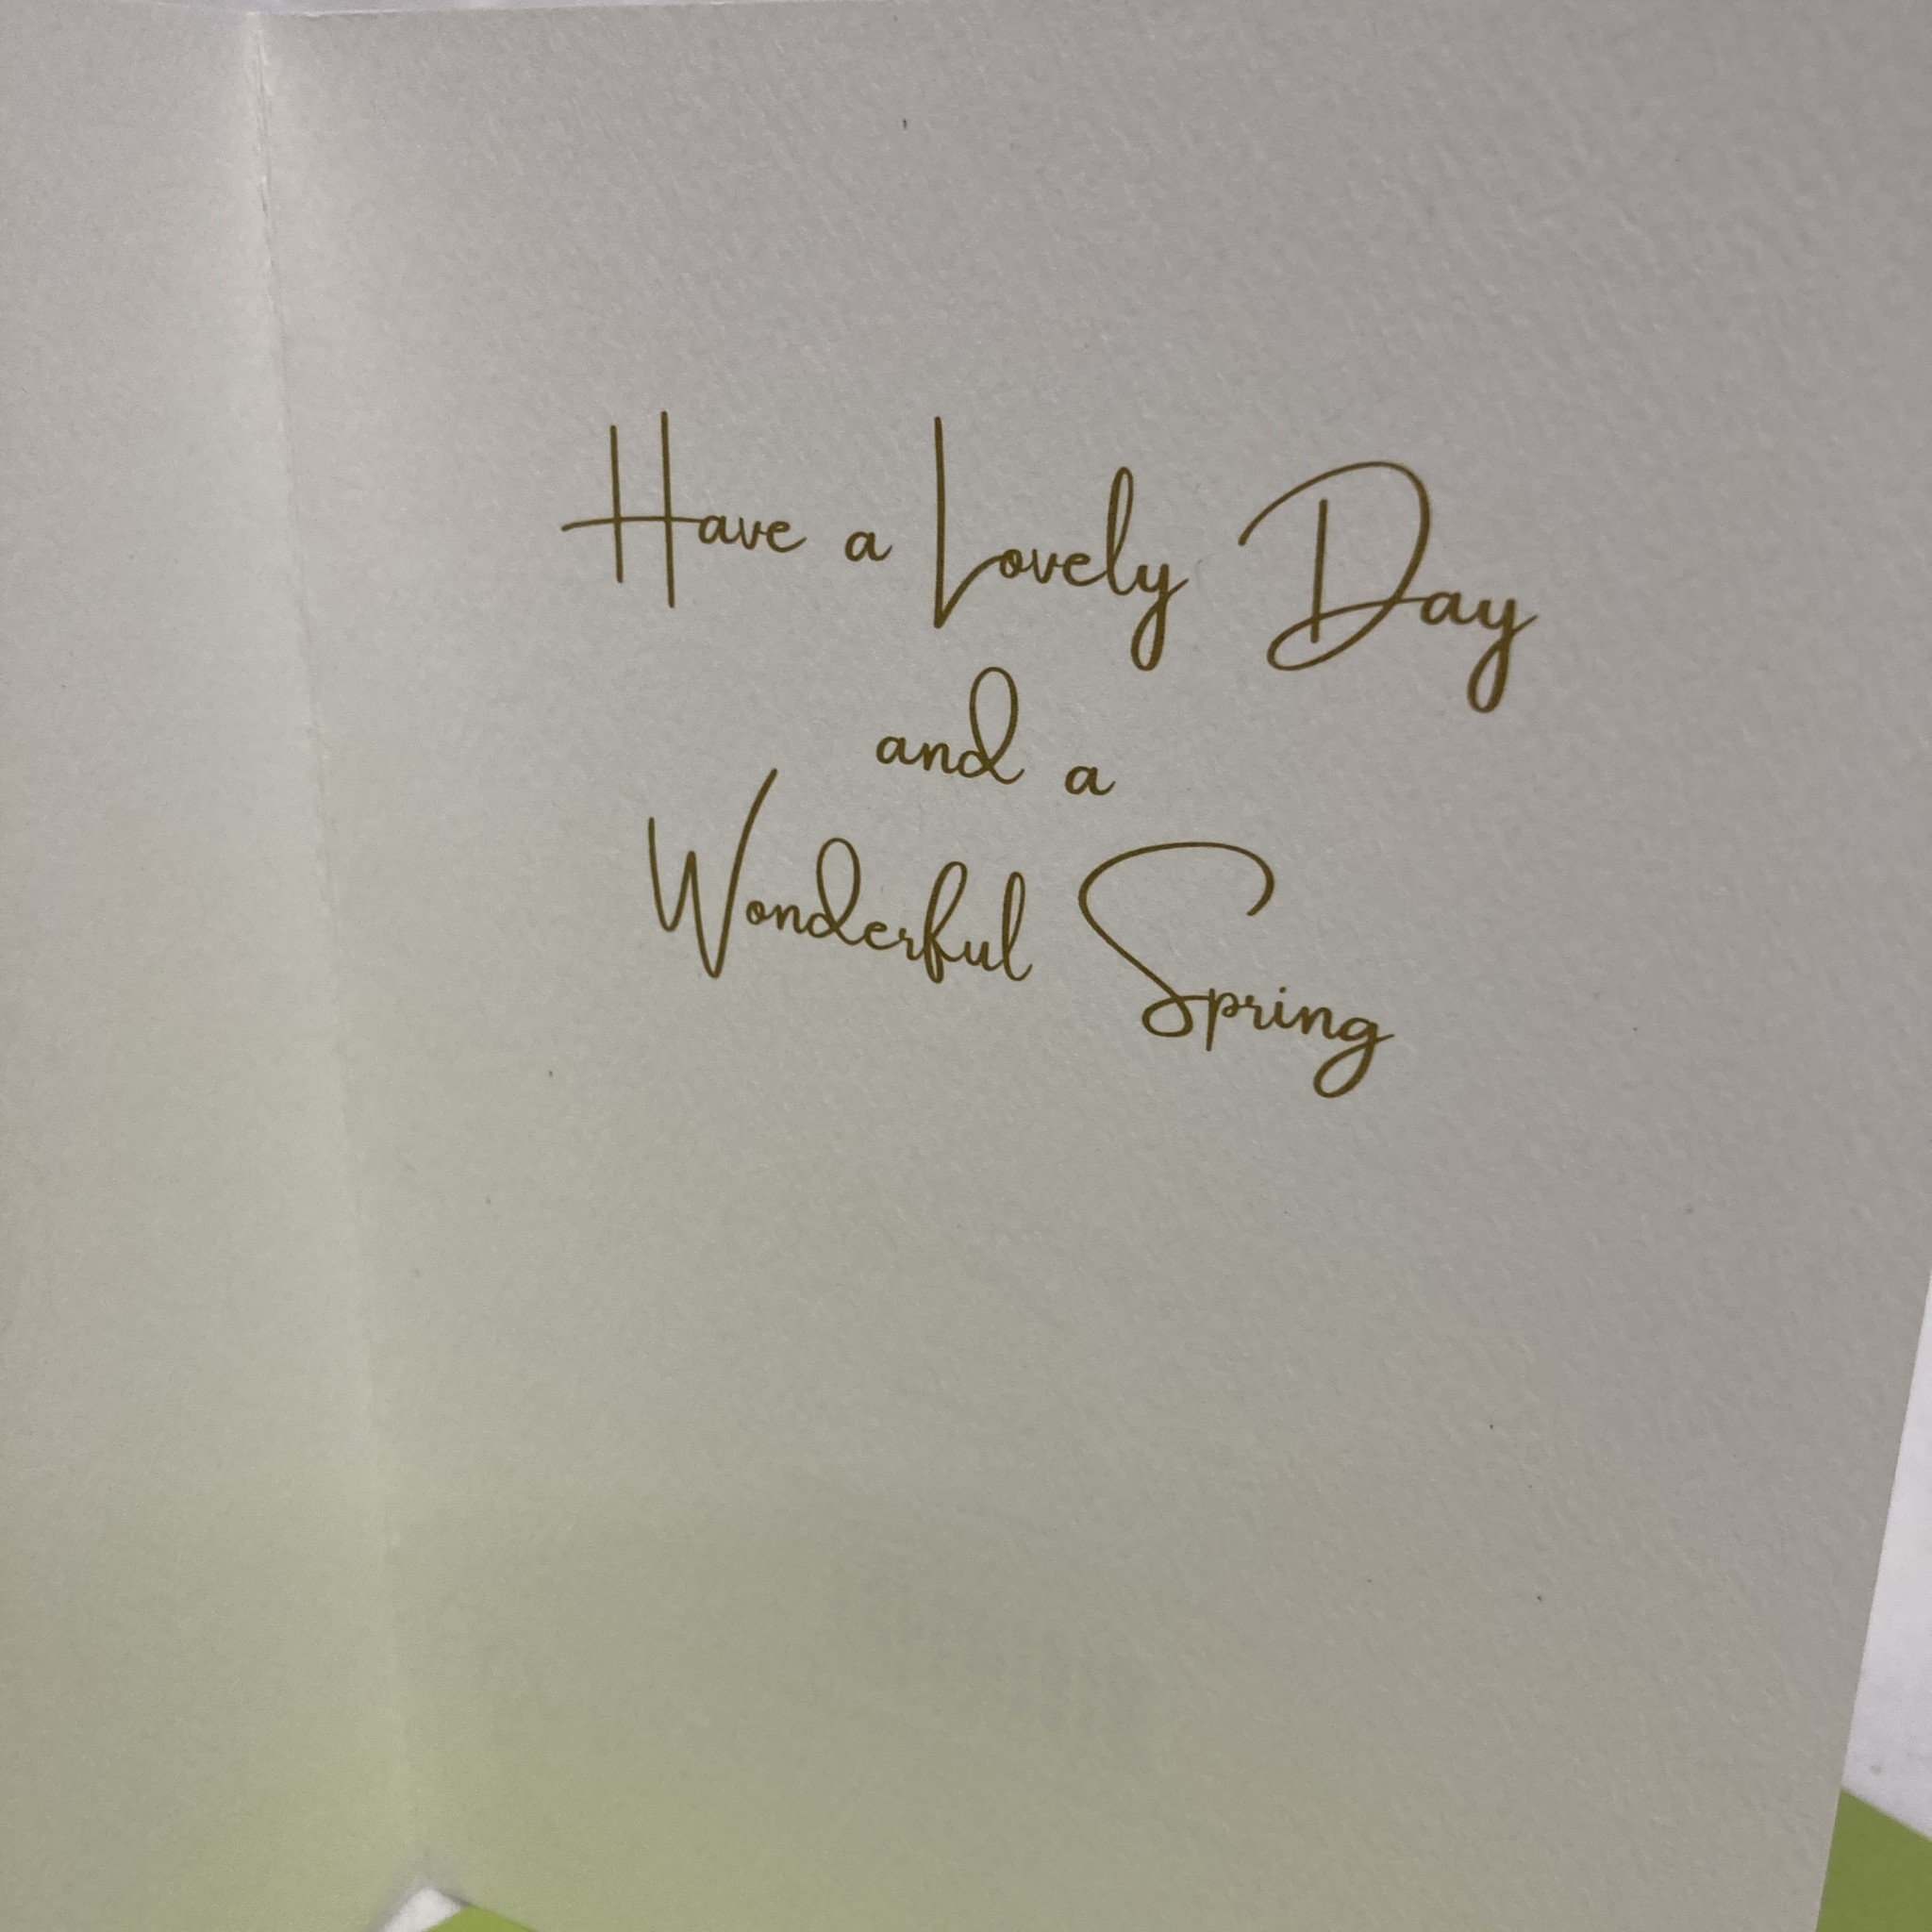 Have a Lovely Day
and a
Wonderful Spring